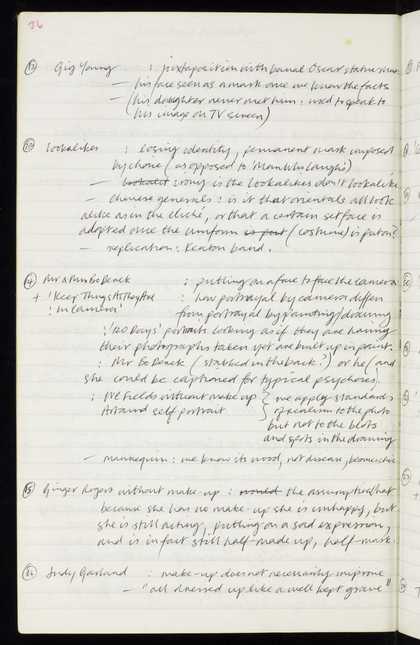 26
Gig Young : juxtaposition with banal Oscar statue
— his face seen as a mask once we know the facts
— (his daughter never met him : used to speak to
his image on TV screen)
Lookalikes : losing identity, permanent mask imposed
by choice (as opposed to 'Man Who Laughs')
— lookalit irony is the lookalikes don't lookalike
— chinese generals : is it that orientals all look
alike as in the cliché, or that a certain set face is
adopted once the uniform is put (costume) is put on?
— replication : Keaton band.
: putting on a face to face the camera
+ 'Keep Things As They Are : how portrayal by camera differs
: In Camera' from portrayal by painting/drawing
: portraits looking as if they are having
their photographs taken yet are built up in paint.
: Mr (stabbed in the back?) or he (and
she could be captioned for typical psychoses).
: WC Fields without make up } we apply standards
Artaud self portrait } of realism to the photo
but not to the blots
and spots in the drawing
— mannequin : we know its wood, not disease,
15 Ginger Rogers without make-up : would the assumption that
because she has no make-up she is unhappy, but
she is still acting, putting on a sad expression,
and is in fact still half-made up, half-mask.
Judy Garland : make-up does not necessarily improve
— "all dressed up like a well kept grave"